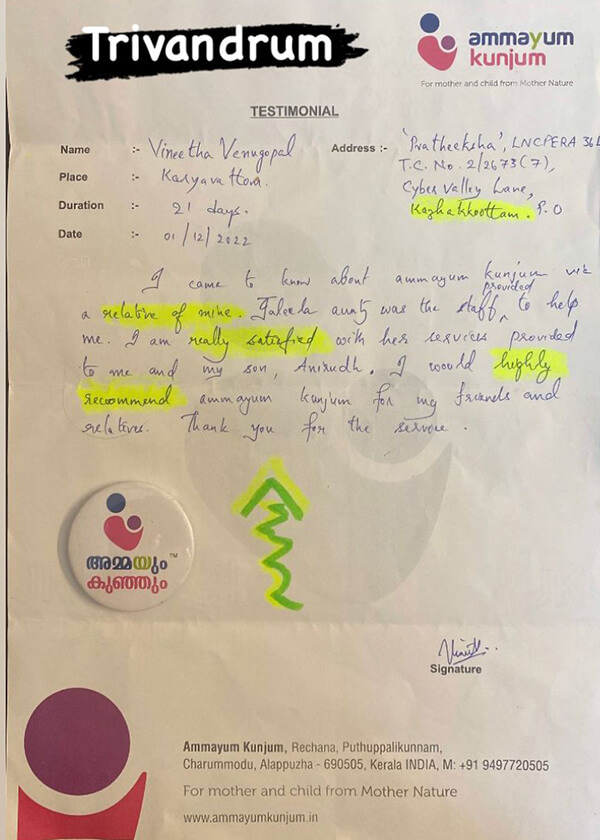 Trivandrum
ammayum
kunjum
For mother and child from Mother Nature
TESTIMONIAL
Name :- Vineetha Venugopal
Address :- 'Pratheeksha', LNCPERA 36
T.C. No. 2/2673(7),
Place :- Karyavattom.
Cyber Valley Lane,
Duration :- 21 days.
Kazhakkoottam. P.O
Date :- 01/12/2022
I came to know about ammayum kunjum via
a relative of mine. Jaleela aunty was the staff provided to help
me. I am really satisfied with her services provided
to me and my son, Anirudh. I would highly
recommend ammayum kunjum for my friends and
relatives. Thank you for the service.
അമ്മയും TM
കുഞ്ഞും
Signature
Ammayum Kunjum, Rechana, Puthuppalikunnam,
Charummodu, Alappuzha - 690505, Kerala INDIA, M: +91 9497720505
For mother and child from Mother Nature
www.ammayumkunjum.in